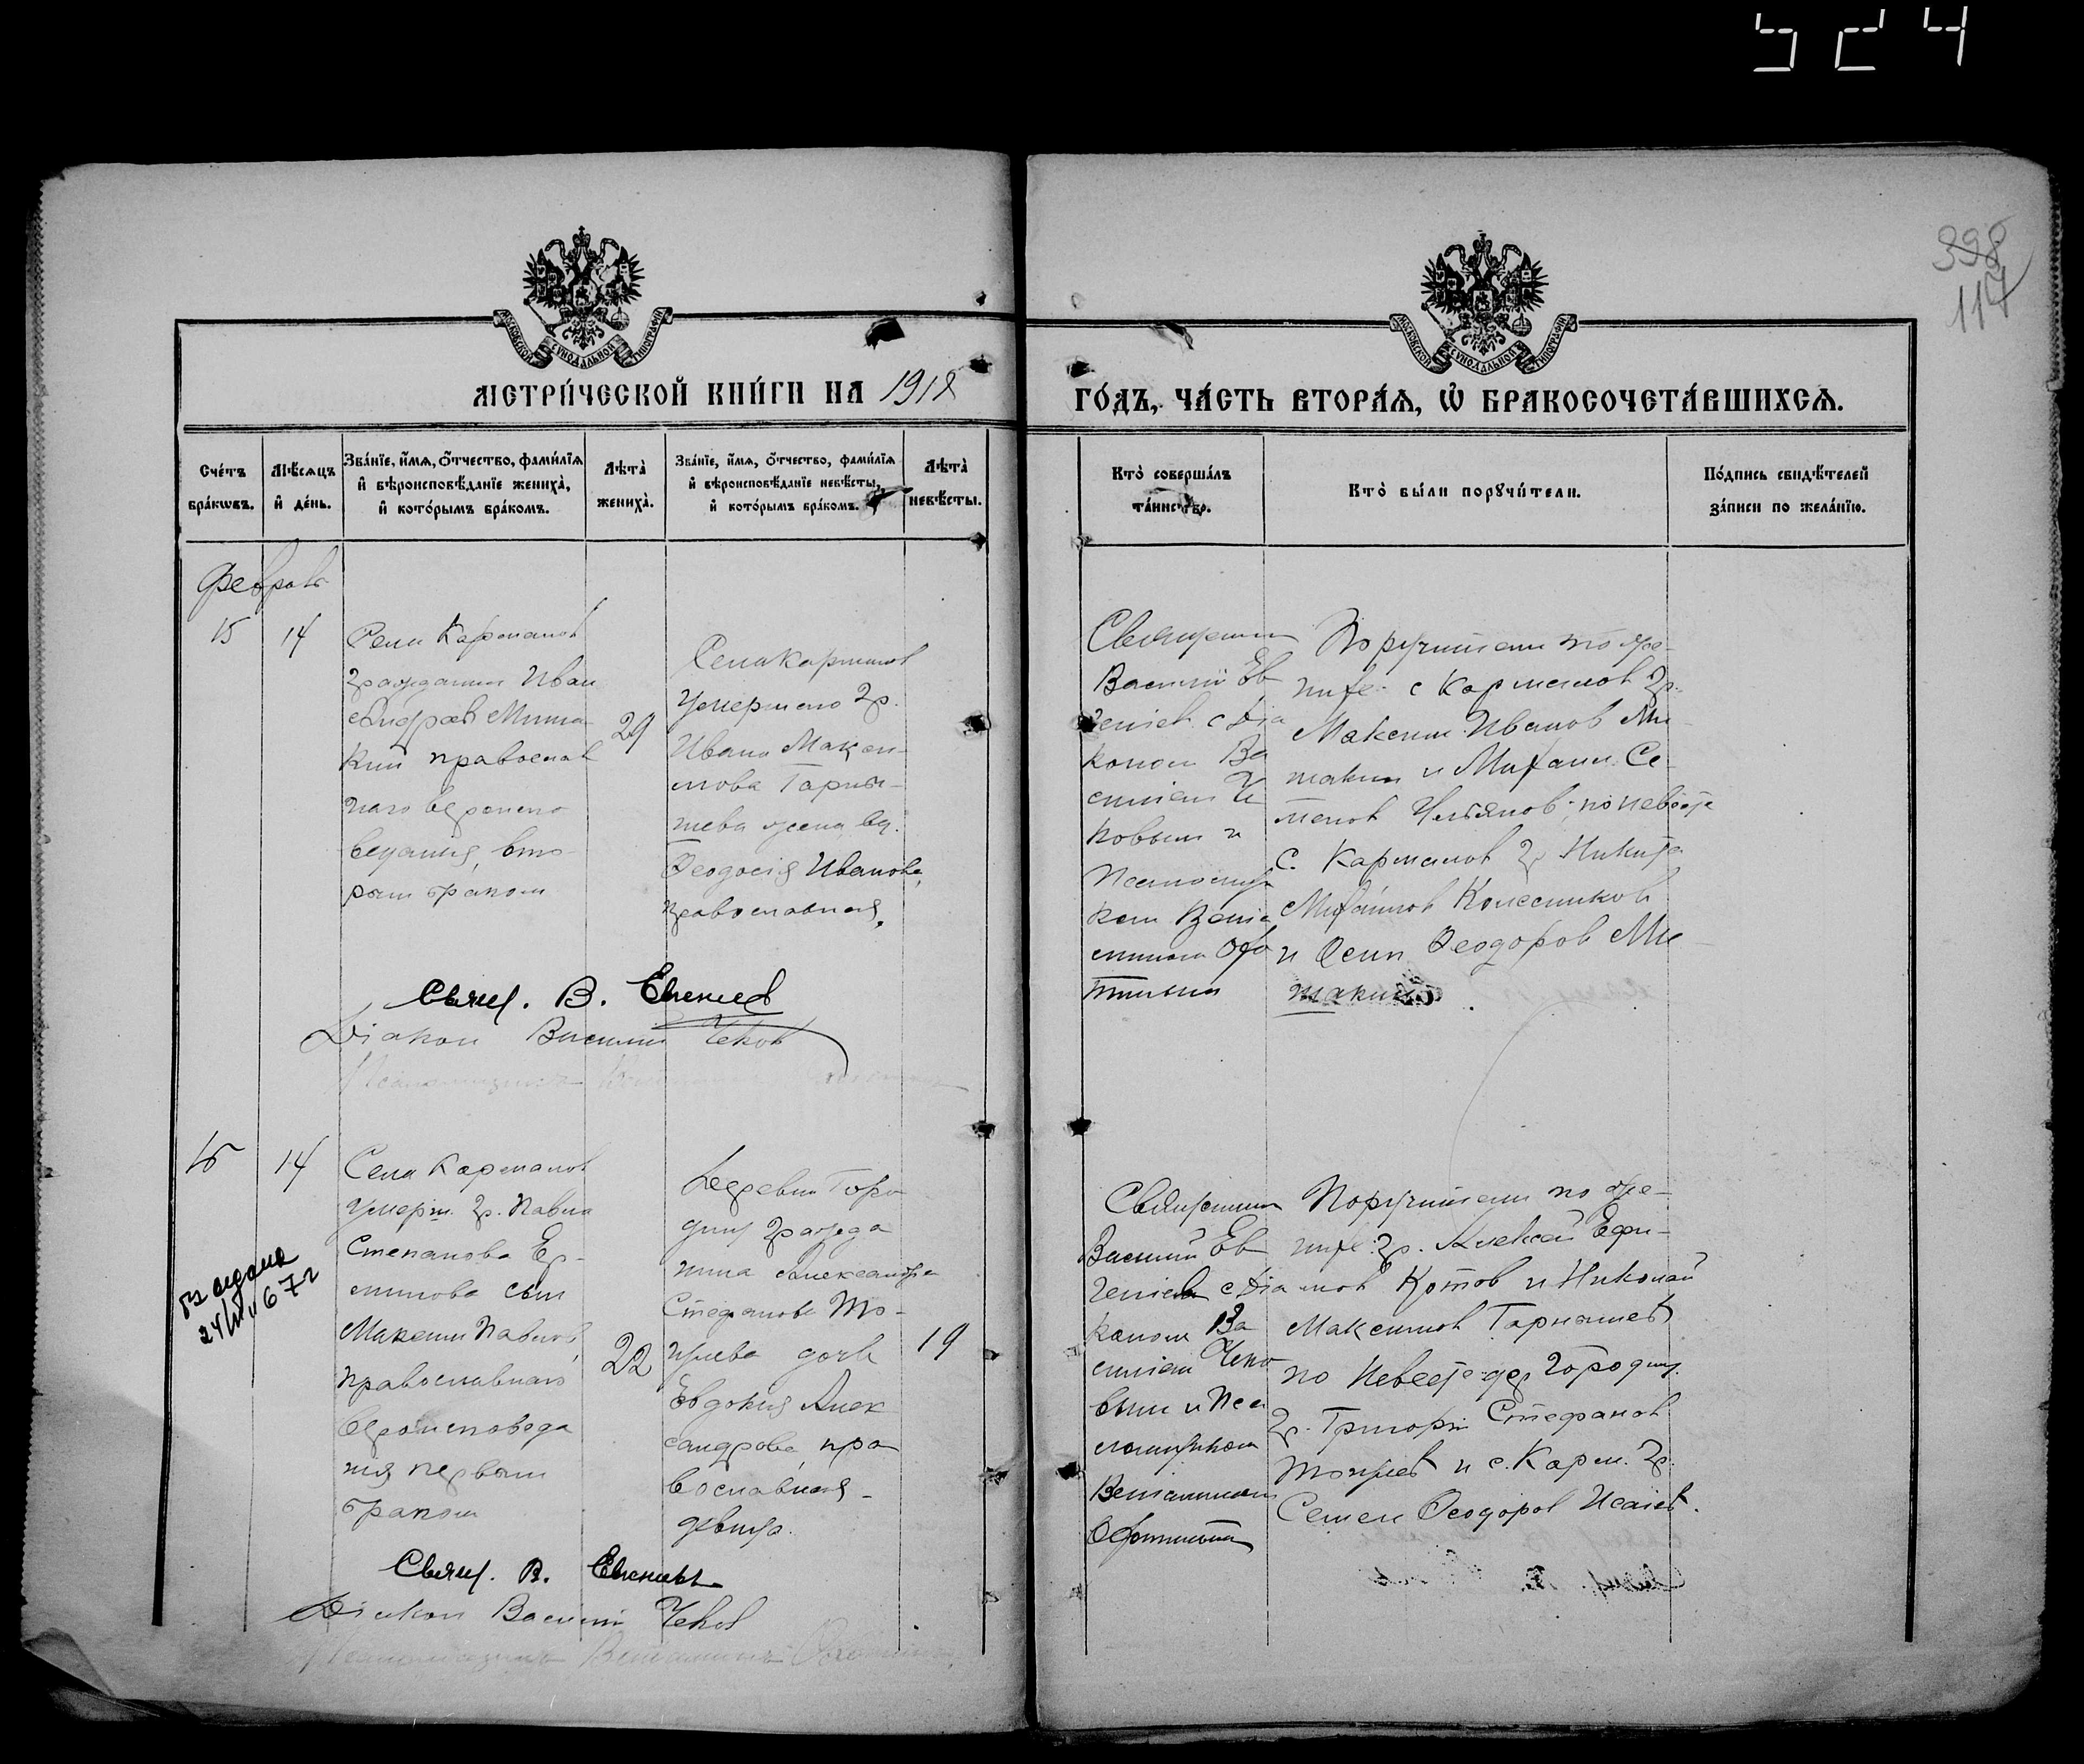 524
398
117
МОСКОВСКОЙ СУНОДАЛЬНОЙ ТИПОГРАФІИ
МОСКОВСКОЙ СУНОДАЛЬНОЙ ТИПОГРАФІИ
МЕТРИ́ЧЕСКОЙ КНИ́ГИ НА 1918
ГО́ДЪ, ЧА́СТЬ ВТОРА́Я, Ѡ БРАКОСОЧЕТА́ВШИХСЯ.
Сче́тъ бра́кѡвъ.
Мѣ́сяцъ и҆ де́нь.
Зва́нїе, и҆́мя, ѻ҆́тчество, фами́лїя
и҆ вѣроисповѣ́данїе жениха̀,
и҆ кото́рымъ бра́комъ.
Лѣта̀ жениха̀.
Зва́нїе, и҆́мя, ѻ҆́тчество, фами́лїя
и҆ вѣроисповѣ́данїе невѣ́сты,
и҆ кото́рымъ бра́комъ.
Лѣта̀ невѣ́сты.
Кто̀ соверша́лъ
та́инство.
Кто̀ бы́ли порꙋчи́тели.
По́дпись свидѣ́телей
за́писи по жела́нїю.
Февраль
15
14
Села Карманов
гражданин Иван
Андреев Мишa-
кин православ
наго вероиспо
ведания, вто-
рым браком
29
Села Карманов
умершаго гр.
Ивана Макси-
мова Гарны-
шева жена вд.
Феодосия Иванова,
православная.
Священник
Василий Ев
гениев с Диа
коном Ва
силием Че
ковым и
Псаломщи
ком Вениа
мином
Поручители по же-
нихе с Карманов гр.
Максим Иванов Ми-
шакин и Михаил Се-
менов; по невесте
с. Карманов гр Никита
Михайлов Колесников
и Осип Феодоров Ми-
шакин.
Свящ. В. Евгениев
Диакон Василий Чеков
Псаломщик
16
14
Села Карманов
умерш. гр. Павла
Степанова Ер-
милова сын
Максим Павлов,
православнаго
вероисповеда
ния первым
браком
22
Деревни Горо
дищ гражда
нина Александра
Стефанова
дочь
Евдокия Алек
сандрова, пра
вославная -
девица.
19
24/III 67г
Священник
Василий Ев
гениев с Диа
коном Ва
силием Чеко
вым и Пса
ломщиком
Вениамином
Поручители по же-
нихе: гр. Алексей Ефи-
мов Котов и Николай
Максимов Гарнашев
по невесте дер Городищ.
гр. Григорий Стефанов
и с. Карм. гр.
Семен Феодоров Исаев.
Свящ. В. Евгениев
Диакон Василий Чеков
Псаломщик Вениамин